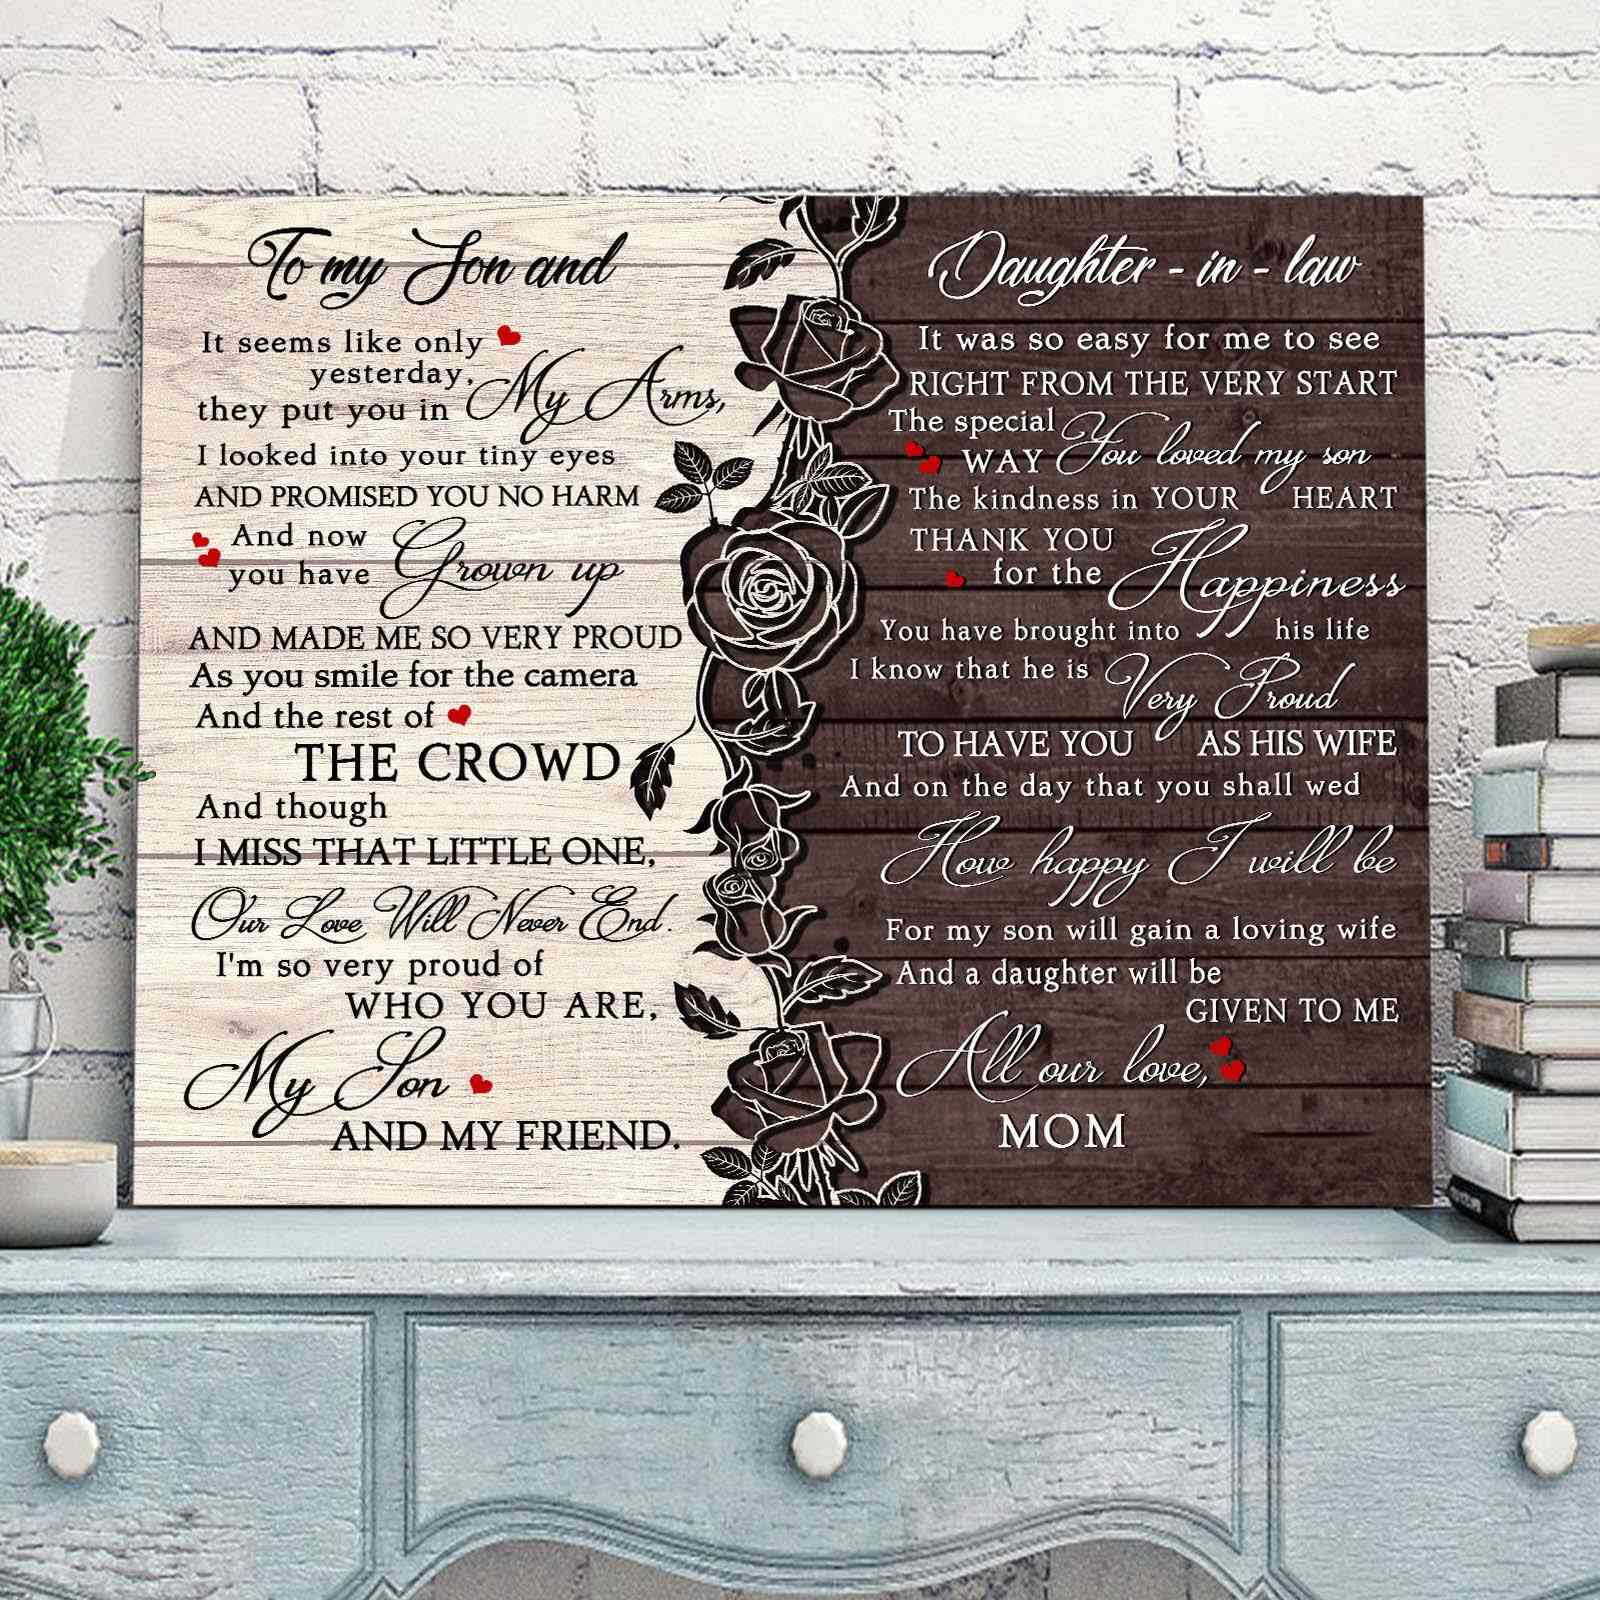 To my Son and
It seems like only
yesterday,
they put you in My Arms,
I looked into your tiny eyes
AND PROMISED YOU NO HARM
And now
you have Grown up
AND MADE ME SO VERY PROUD
As you smile for the camera
And the rest of
THE CROWD
And though
I MISS THAT LITTLE ONE,
Our Love Will Never End.
I'm so very proud of
WHO YOU ARE,
My Son
AND MY FRIEND.
Daughter - in - law
It was so easy for me to see
RIGHT FROM THE VERY START
The special
WAY You loved my son
The kindness in YOUR HEART
THANK YOU
for the Happiness
You have brought into his life
I know that he is Very Proud
TO HAVE YOU AS HIS WIFE
And on the day that you shall wed
How happy I will be
For my son will gain a loving wife
And a daughter will be
GIVEN TO ME
All our love,
MOM